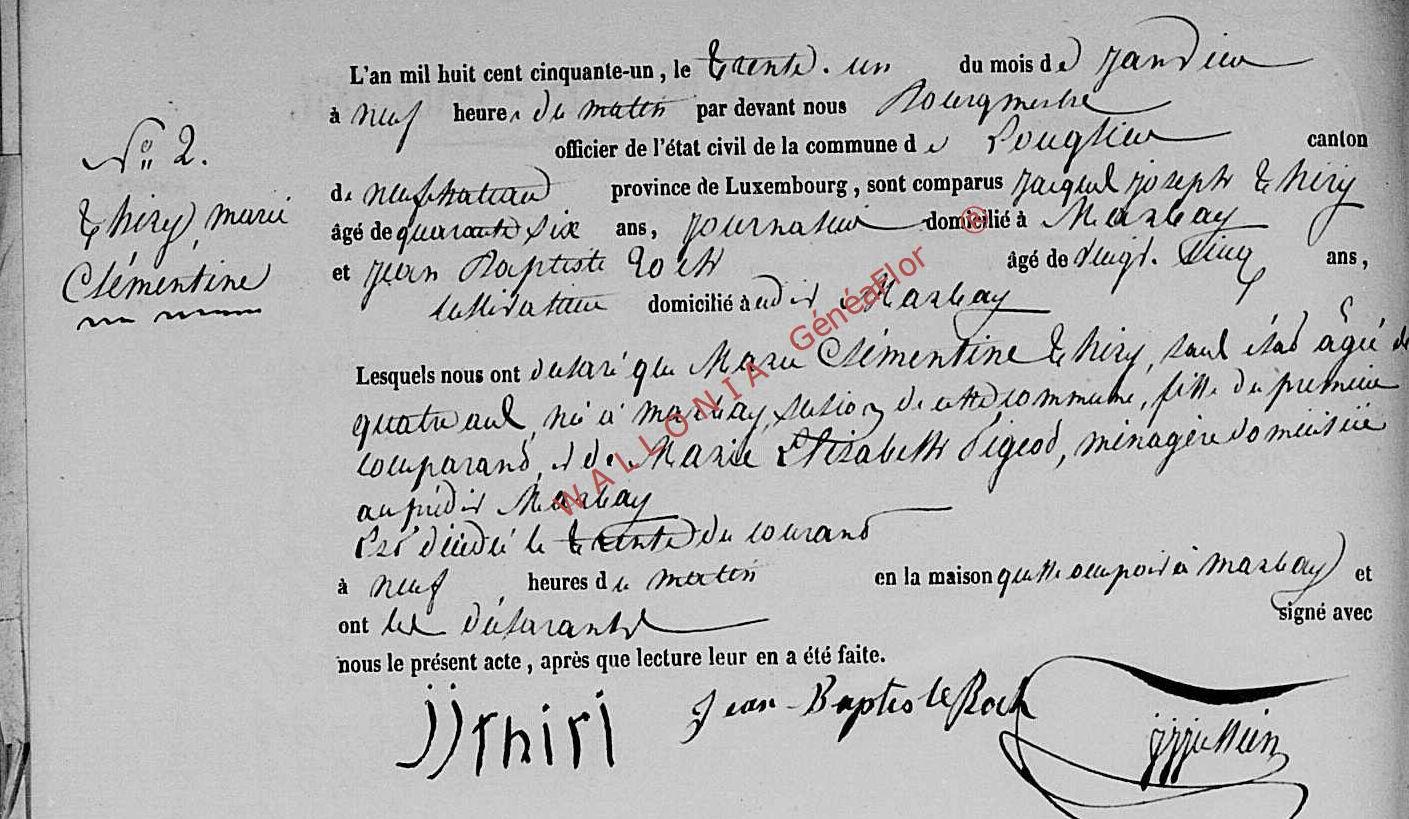 L'an mil huit cent cinquante-un, le trente-un du mois de Janvier
à neuf heures du matin par devant nous Bourgmestre
officier de l'état civil de la commune de Longlier canton
de neufchateau province de Luxembourg, sont comparus jacques joseph Thiry
âgé de quarante six ans, journalier domicilié à Marbay
et jean Baptiste Roch âgé de vingt-cinq ans,
cultivateur domicilié à udit Marbay
Lesquels nous ont déclaré que Marie Clémentine Thiry, sans état âgée de
quatre ans, née à marbay, section de cette commune, fille du premier
comparand, et de Marie Elisabeth Pigeod, ménagère domiciliée
au prédit Marbay
Est décédée le trente du courand
à neuf heures du matin en la maison qu'elle occupoit à marbay et
ont les déclarants signé avec
nous le présent acte, après que lecture leur en a été faite.
N° 2.
Thiry, marie
Clémentine
jj thiri
Jean-Baptiste Roch
WALLONIA GénéaFlor ®